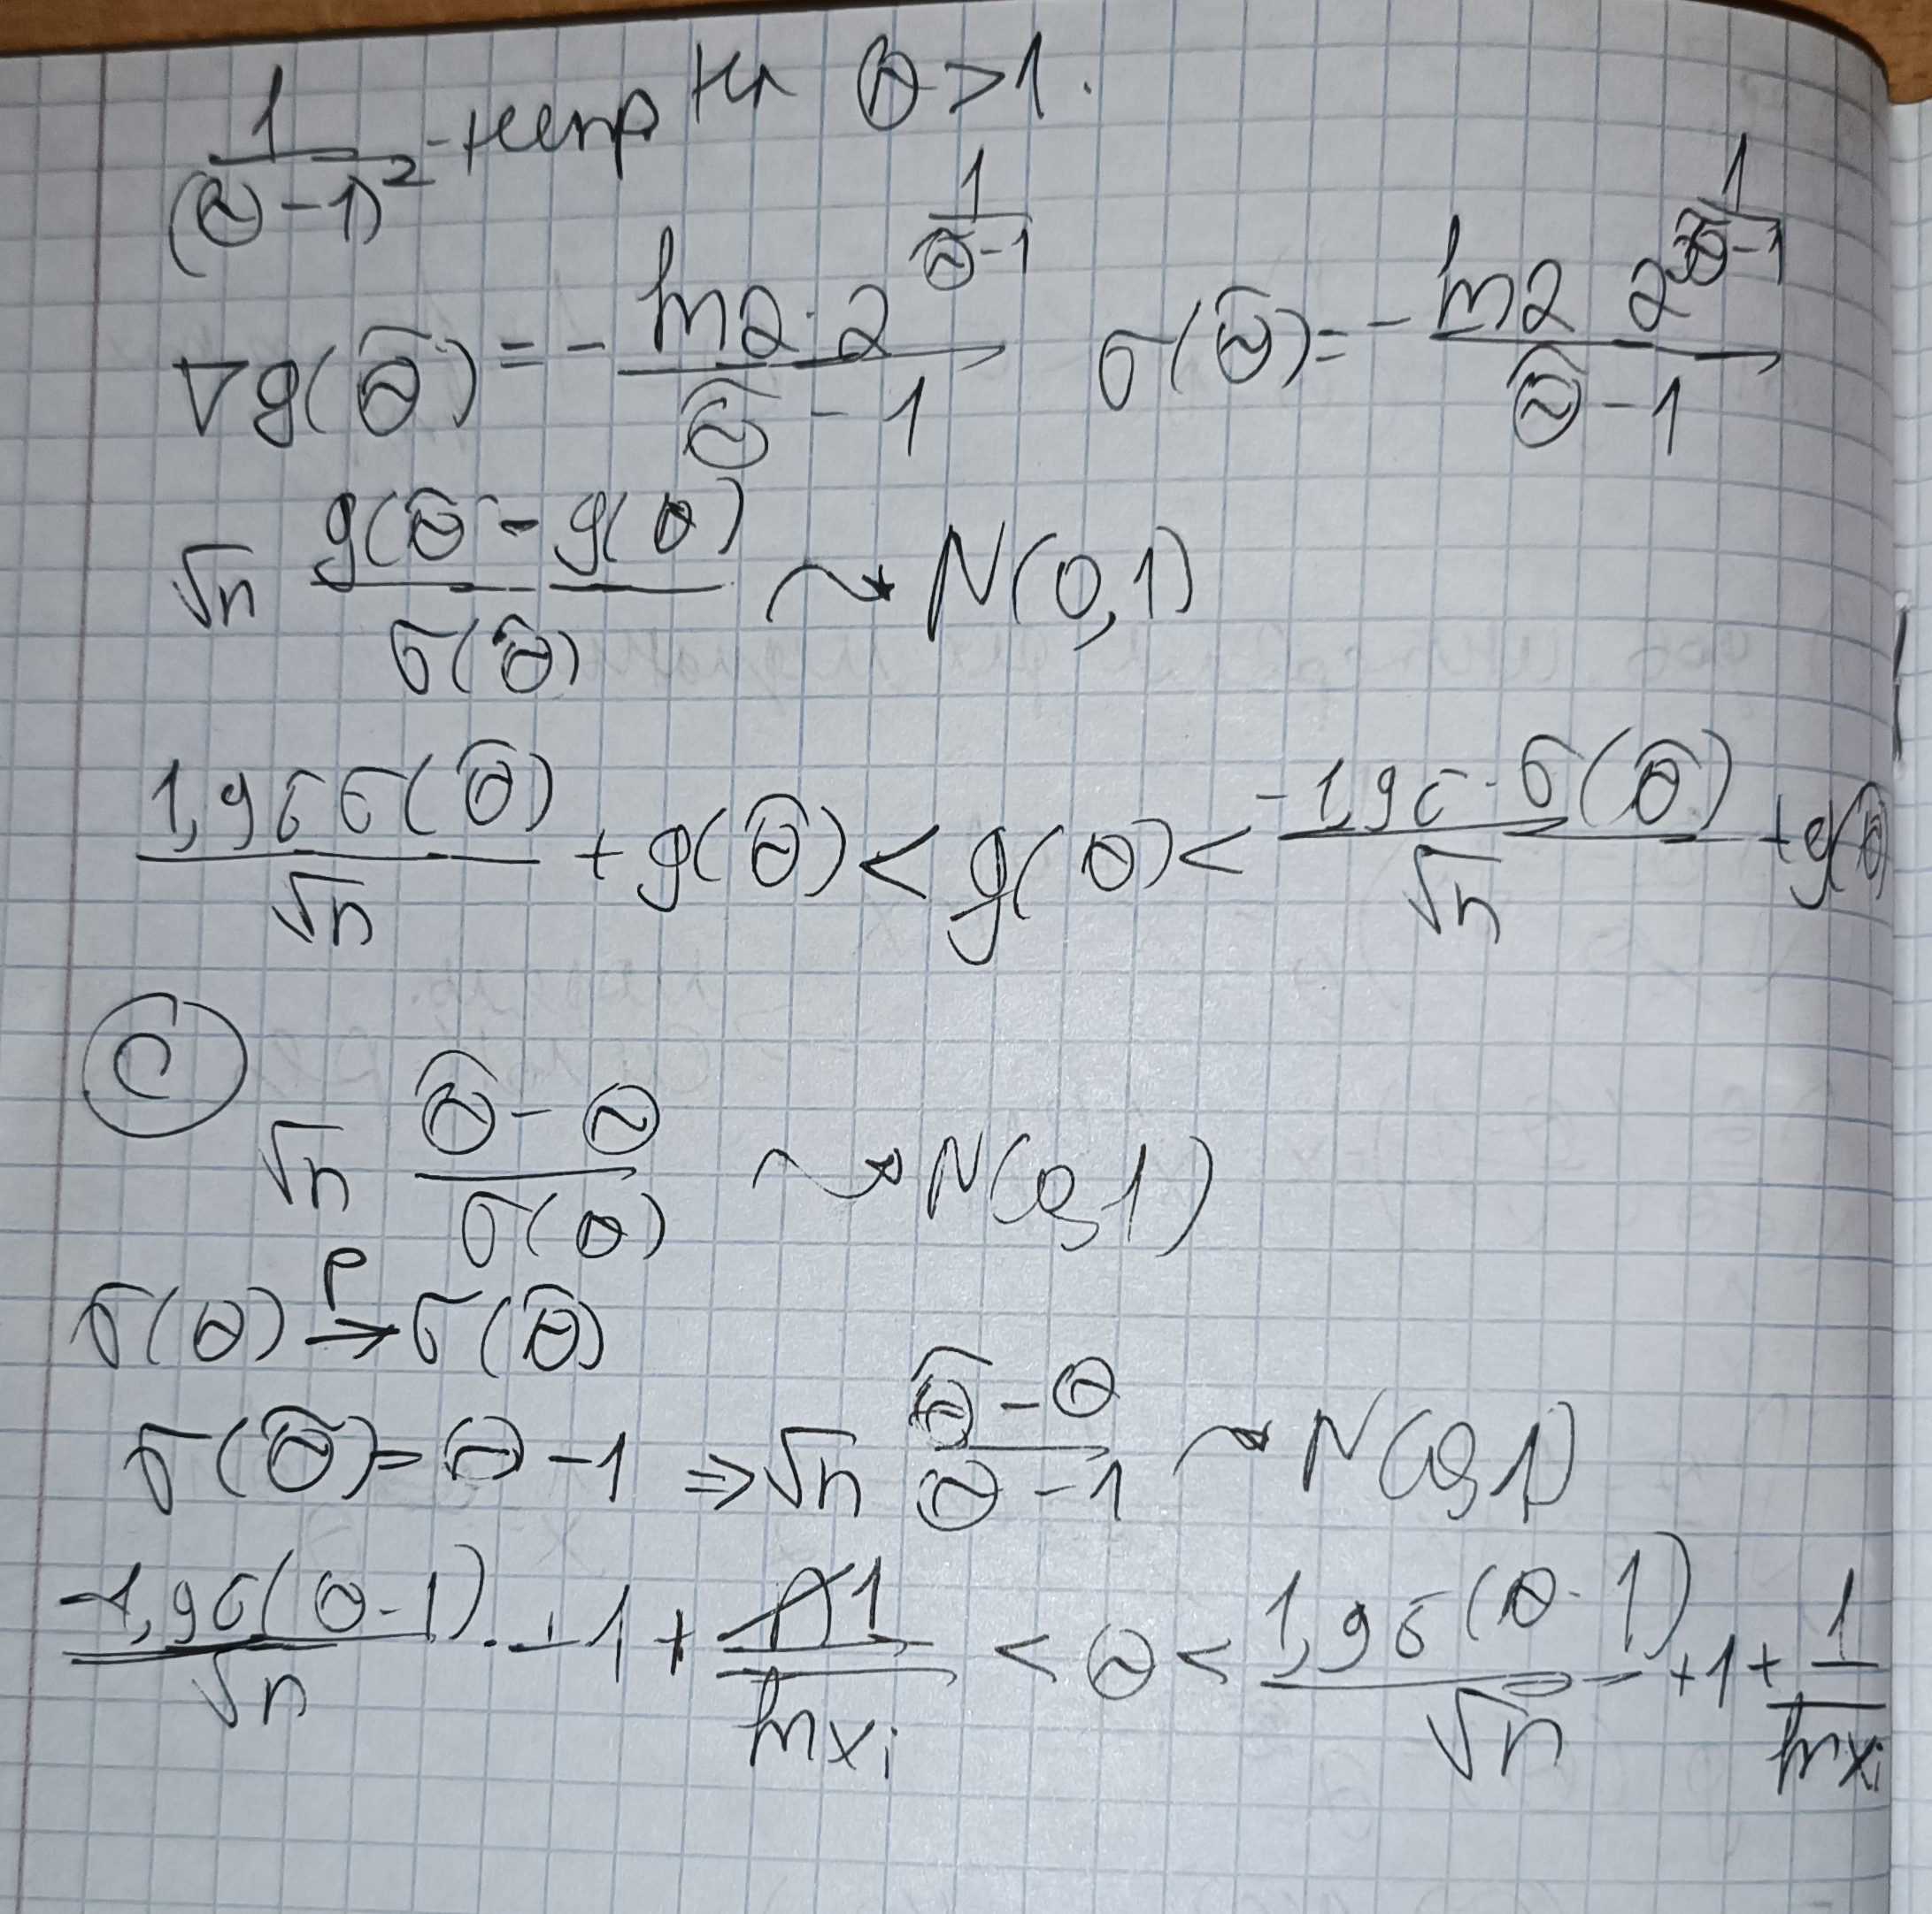 1/(θ-1)² - непр на θ>1.
∇g(θ̂) = - ln2·2^(1/(θ̂-1))/(θ̂-1)   σ(θ̂) = - ln2 2^(1/(θ̂-1))/(θ̂-1)
√n (g(θ̂ - g(θ))/σ(θ̂) ⇝ N(0,1)
1,96σ(θ̂)/√n + g(θ̂) < g(θ) < -1,96·σ(θ̂)/√n + g(θ̂)
C
√n (θ̂-θ)/σ(θ) ⇝ N(0,1)
σ(θ) →^P σ(θ̂)
σ(θ̂) = θ-1 ⇒ √n (θ̂-θ)/(θ-1) ⇝ N(0,1)
-1,96(θ-1)/√n + 1 + 1/ln xᵢ < θ < 1,96(θ-1)/√n + 1 + 1/ln xᵢ